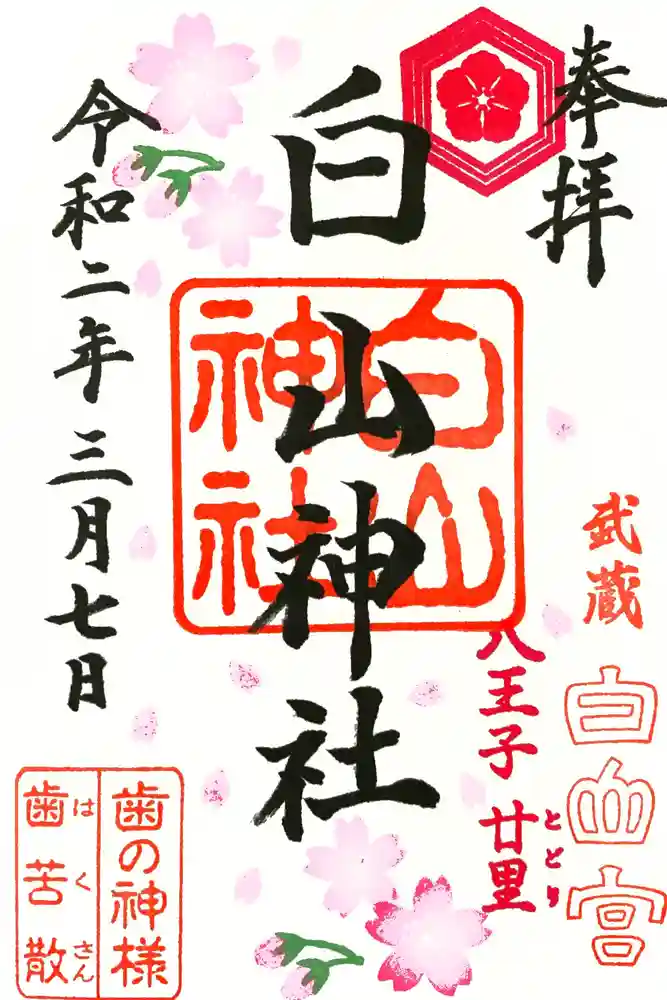 奉拝
武蔵
白山宮
八王子 廿里
とどり
白山神社
白山
神社
令和二年三月七日
歯の神様
歯苦散
はくさん